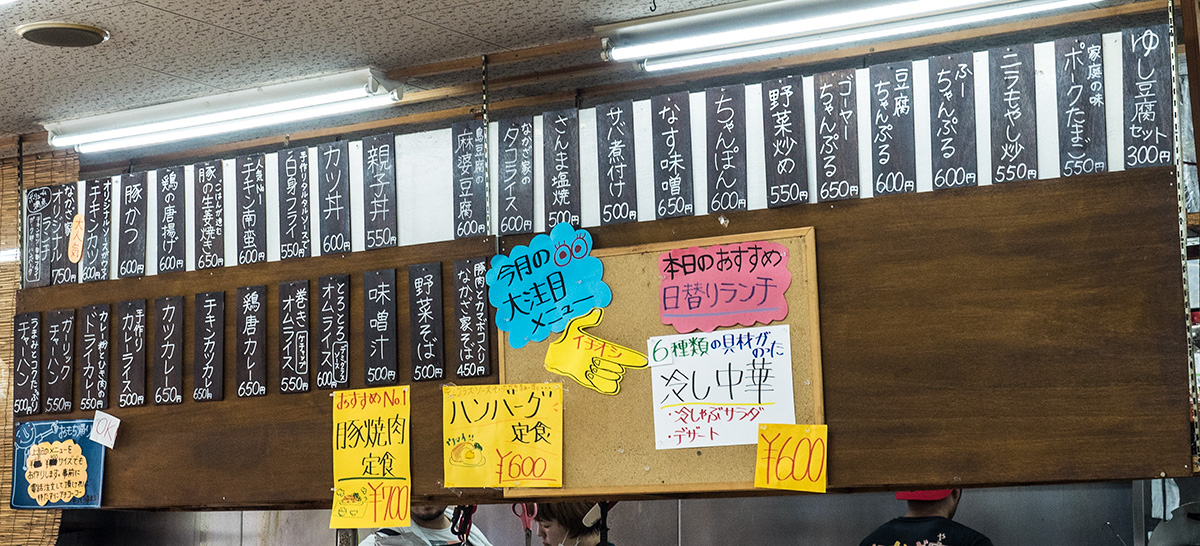 ゆし豆腐
セット
300円
家庭の味
ポークたまご
550円
ニラモヤシ炒
550円
ふー
ちゃんぷる
600円
豆腐
ちゃんぷる
600円
ゴーヤー
ちゃんぷる
650円
野菜炒め
550円
ちゃんぽん
600円
なす味噌
650円
サバ煮付け
500円
さんま塩焼
550円
なかざ家の
タコライス
600円
島豆腐の
麻婆豆腐
600円
親子丼
550円
カツ丼
600円
手作りタルタルソースで
白身フライ
550円
人気No.1
チキン南蛮
600円
ごはんが進む
豚の生姜焼き
650円
鶏の唐揚げ
600円
豚かつ
600円
オリジナルソースがケッサク
チキンカツ
600円
大人気
なかざ家
オリジナル
ランチ
750円
豚肉とカツオゴハン入り
なかざ家そば
450円
野菜そば
600円
味噌汁
500円
とろとろ
オムライス
600円
巻きき
オムライス
ケチャップ
550円
鶏唐カレー
650円
チキンカツカレー
650円
カツカレー
650円
手作り
カレーライス
500円
カレー粉とひき肉の
ドライカレー
550円
ガーリック
チャーハン
550円
うまみとコクたっぷり
チャーハン
500円
今月の
大注目
メニュー
イチオシ
本日のおすすめ
日替りランチ
6種類の具材が
のった
冷し中華
・冷しゃぶサラダ
・デザート
¥600
ハンバーグ
定食
¥600
おすすめNo1
豚焼肉
定食
¥700
おもち帰り
OK
上記のメニューを
サイズでも
お作りします。事前に
電話注文して頂けれ